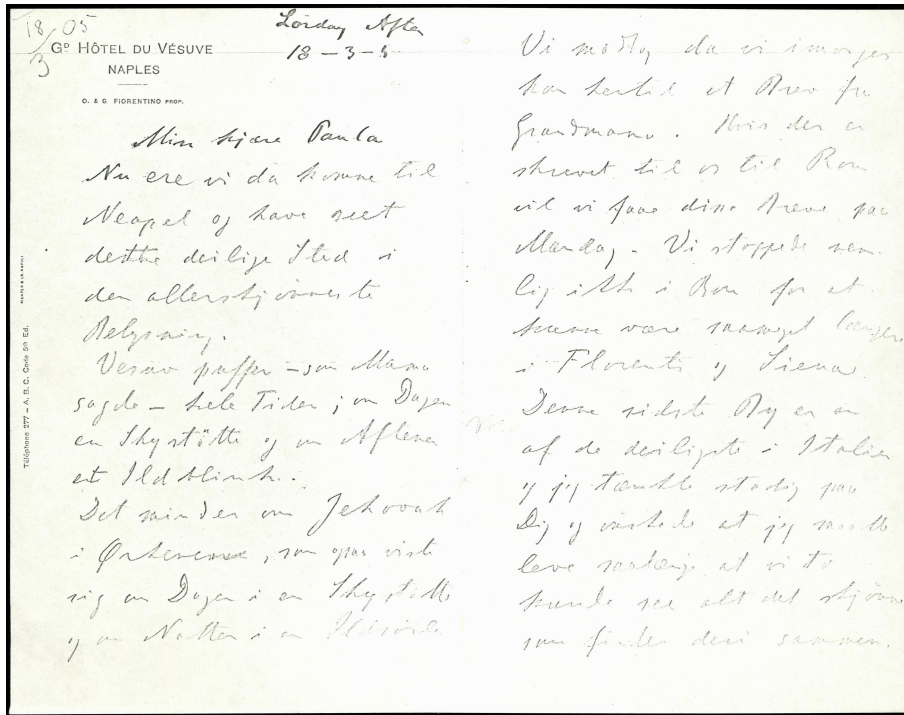 18/3 05
Lørdag Aften
18-3-5
GD HÔTEL DU VÉSUVE
NAPLES
D. & G. FIORENTINO PROP.
Min kjære Paula
Nu ere vi da komne til
Neapel og have seet
dette deilige Sted i
den allerskjønneste
Belysning.
Vesuv puffer – som Mama
sagde – hele Tiden; om Dagen
en Skystøtte og om Aftenen
et Ildblink.
Det minder om Jehovah
i Ørkenen, som ogsaa viste
sig om Dagen i en Skystøtte
og om Natten i en Ildsøile
Téléphone 277 – A. B. C. Code 5th Ed.
Vi modtog da vi imorges
kom hertil et Brev fra
Grandmama. Hvis der er
skrevet til os til Rom
vil vi faae disse Breve paa
Mandag – Vi stoppede nem-
lig ikke i Rom for at
kunne være saameget længer
i Florents og Siena.
Denne sidste By er en
af de deiligste i Italien
og jeg tænkte stadig paa
Dig og ønskede at jeg maatte
leve saalænge at vi to
kunde see alt det skjønne
som findes deri sammen.